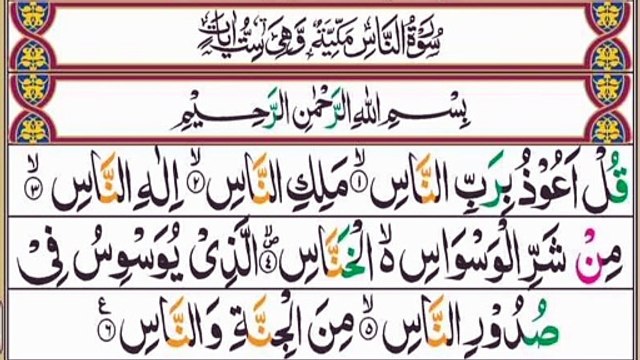 سُوْرَةُ النَّاسِ مَكِّيَّةٌ وَّهِیَ سِتُّ اٰيَاتٍ
بِسْمِ اللهِ الرَّحْمٰنِ الرَّحِيْمِ
قُلْ اَعُوْذُ بِرَبِّ النَّاسِ ۙ﴿۱﴾ مَلِكِ النَّاسِ ۙ﴿۲﴾ اِلٰهِ النَّاسِ ۙ﴿۳﴾
مِنْ شَرِّ الْوَسْوَاسِ ۙ۬ الْخَنَّاسِ ۪ۙ﴿۴﴾ الَّذِیْ يُوَسْوِسُ فِیْ
صُدُوْرِ النَّاسِ ۙ﴿۵﴾ مِنَ الْجِنَّةِ وَالنَّاسِ ﴿۶﴾ ع